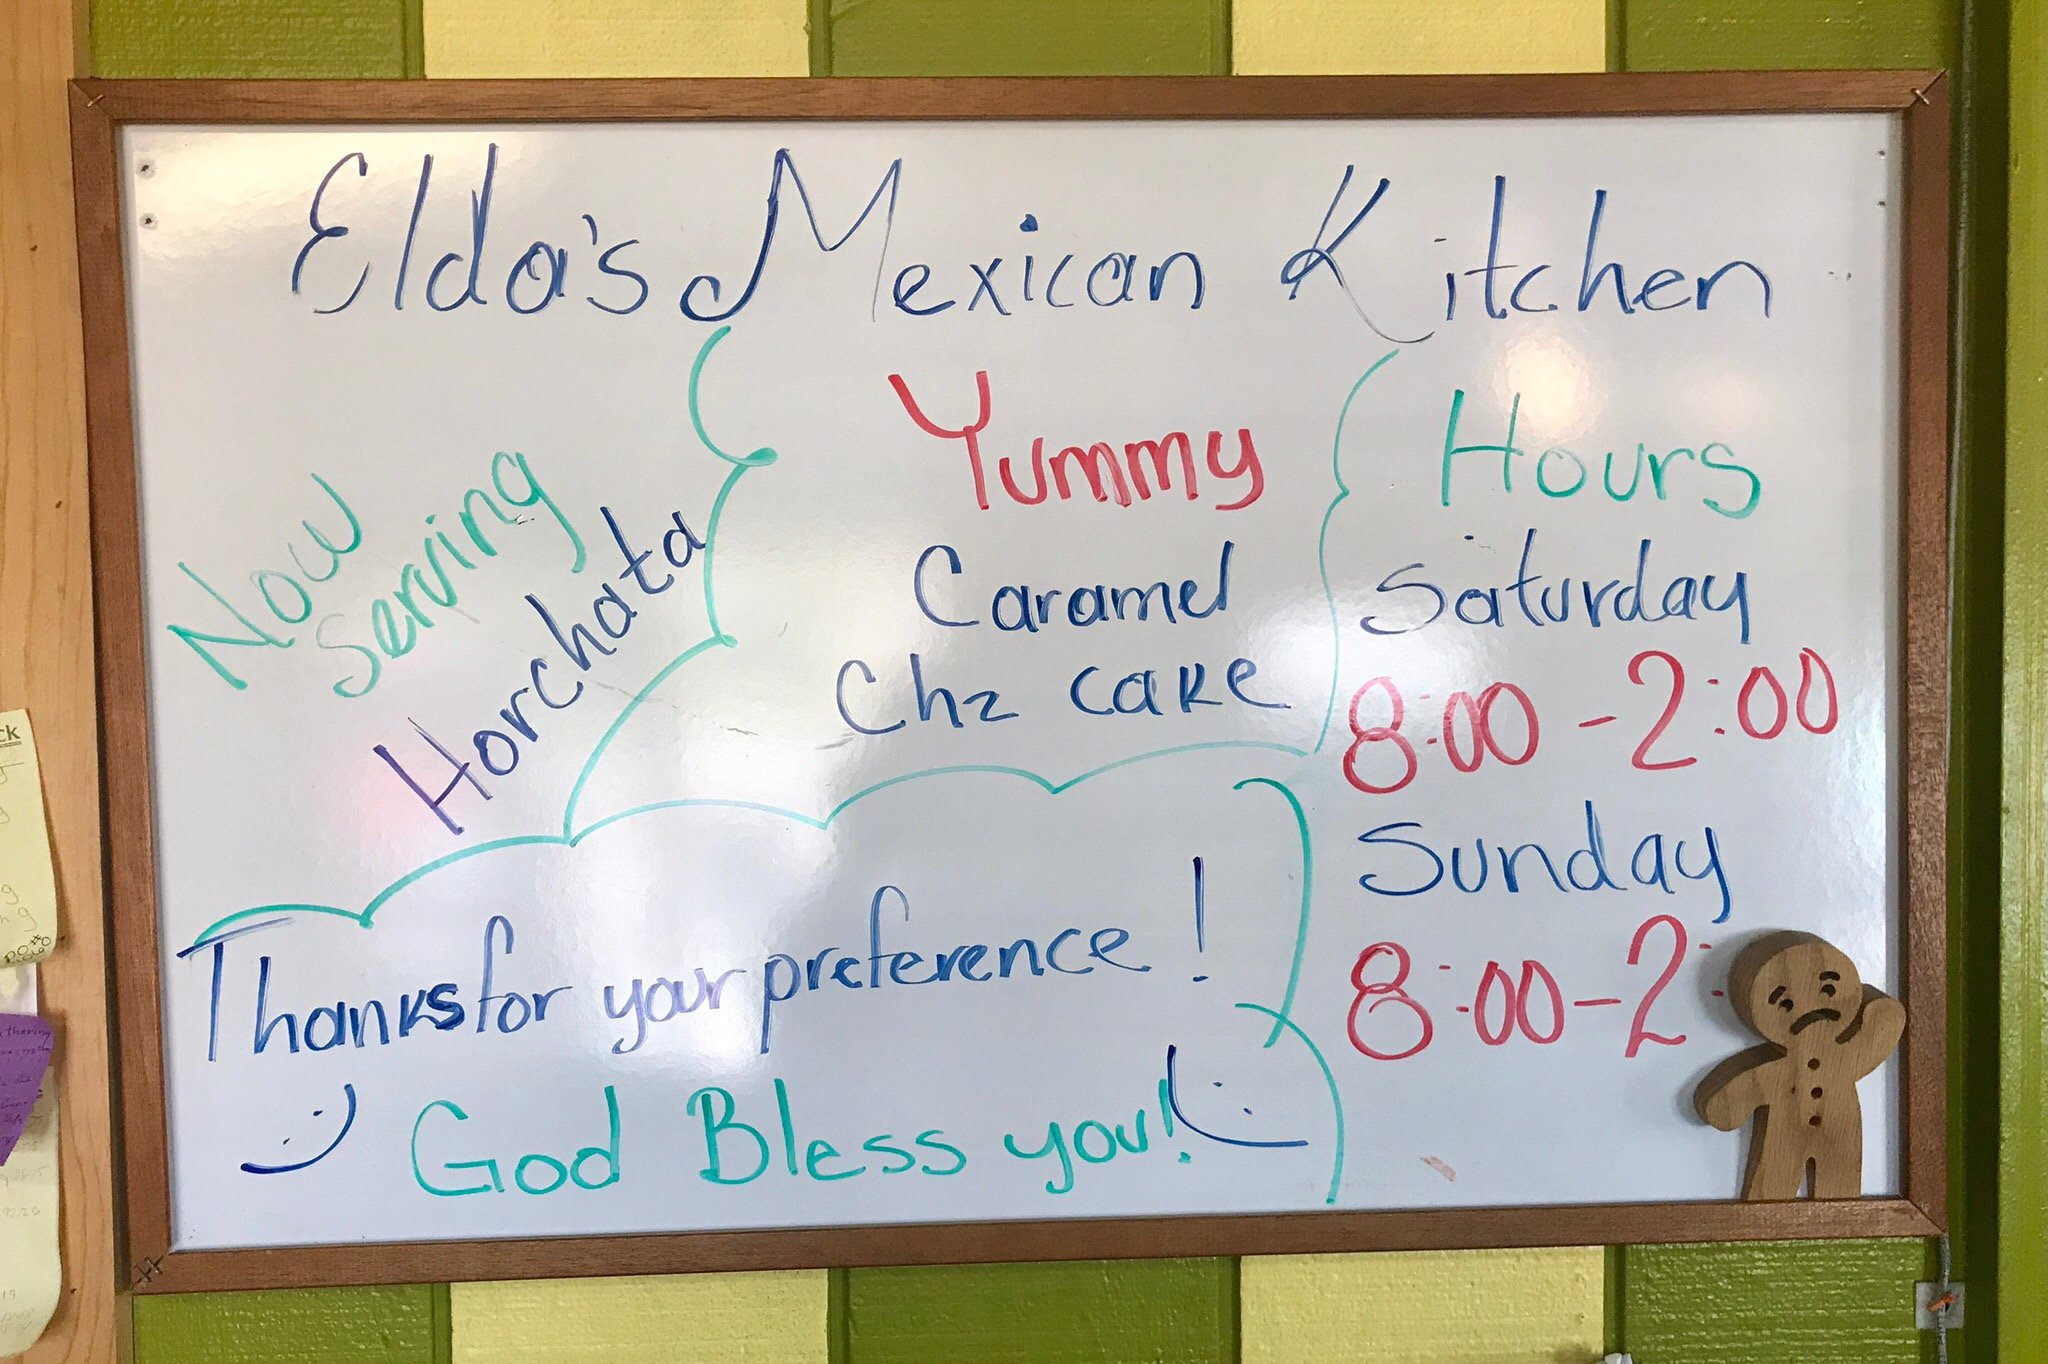 Elda's Mexican Kitchen
Now
Serving
Horchata
Yummy
Caramel
Chz cake
Hours
Saturday
8:00 - 2:00
Sunday
8:00 - 2:
Thanks for your preference!
God Bless you!